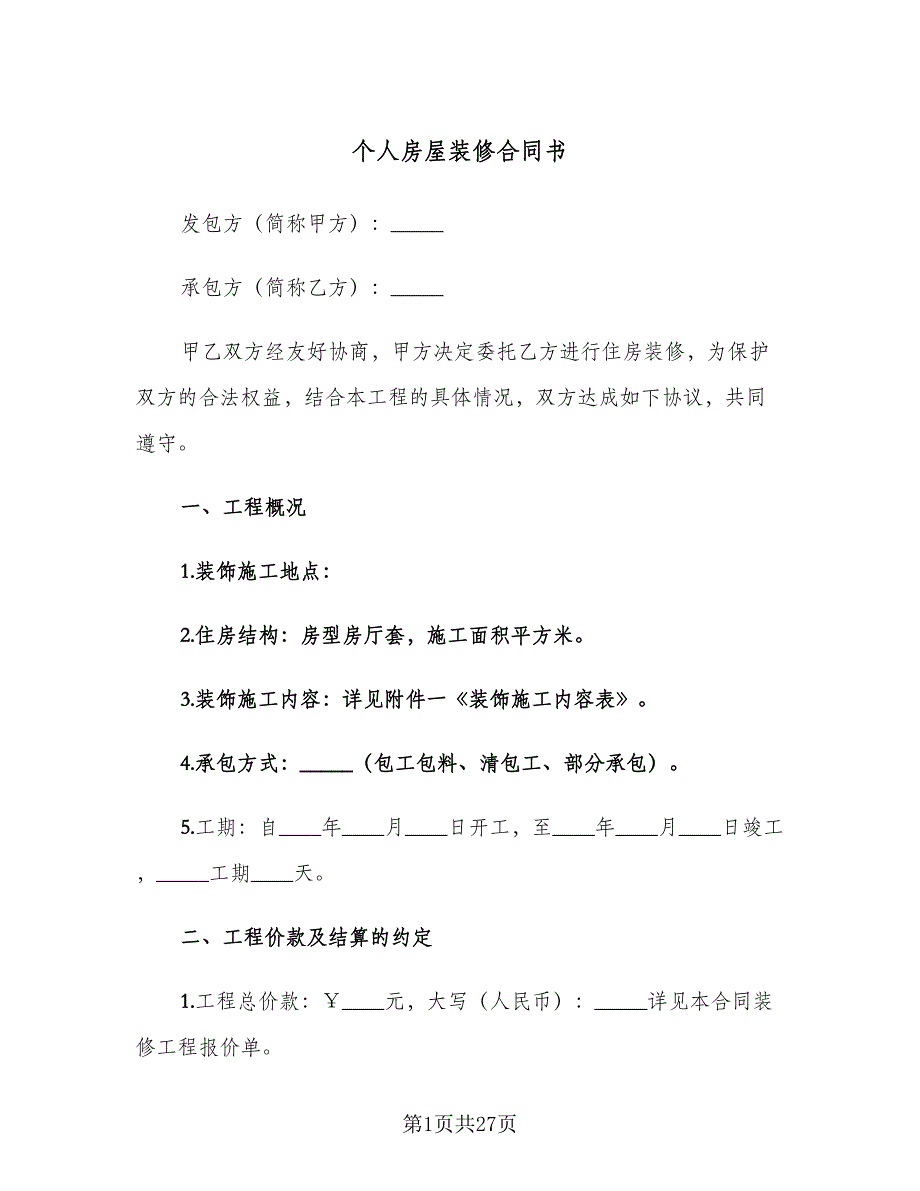 个人房屋装修合同书
发包方（简称甲方）：_____
承包方（简称乙方）：_____
甲乙双方经友好协商，甲方决定委托乙方进行住房装修，为保护
双方的合法权益，结合本工程的具体情况，双方达成如下协议，共同
遵守。
一、工程概况
1.装饰施工地点：
2.住房结构：房型房厅套，施工面积平方米。
3.装饰施工内容：详见附件一《装饰施工内容表》。
4.承包方式：_____（包工包料、清包工、部分承包）。
5.工期：自____年____月____日开工，至____年____月____日竣工
，_____工期____天。
二、工程价款及结算的约定
1.工程总价款：￥____元，大写（人民币）：_____详见本合同装
修工程报价单。
第1页共27页